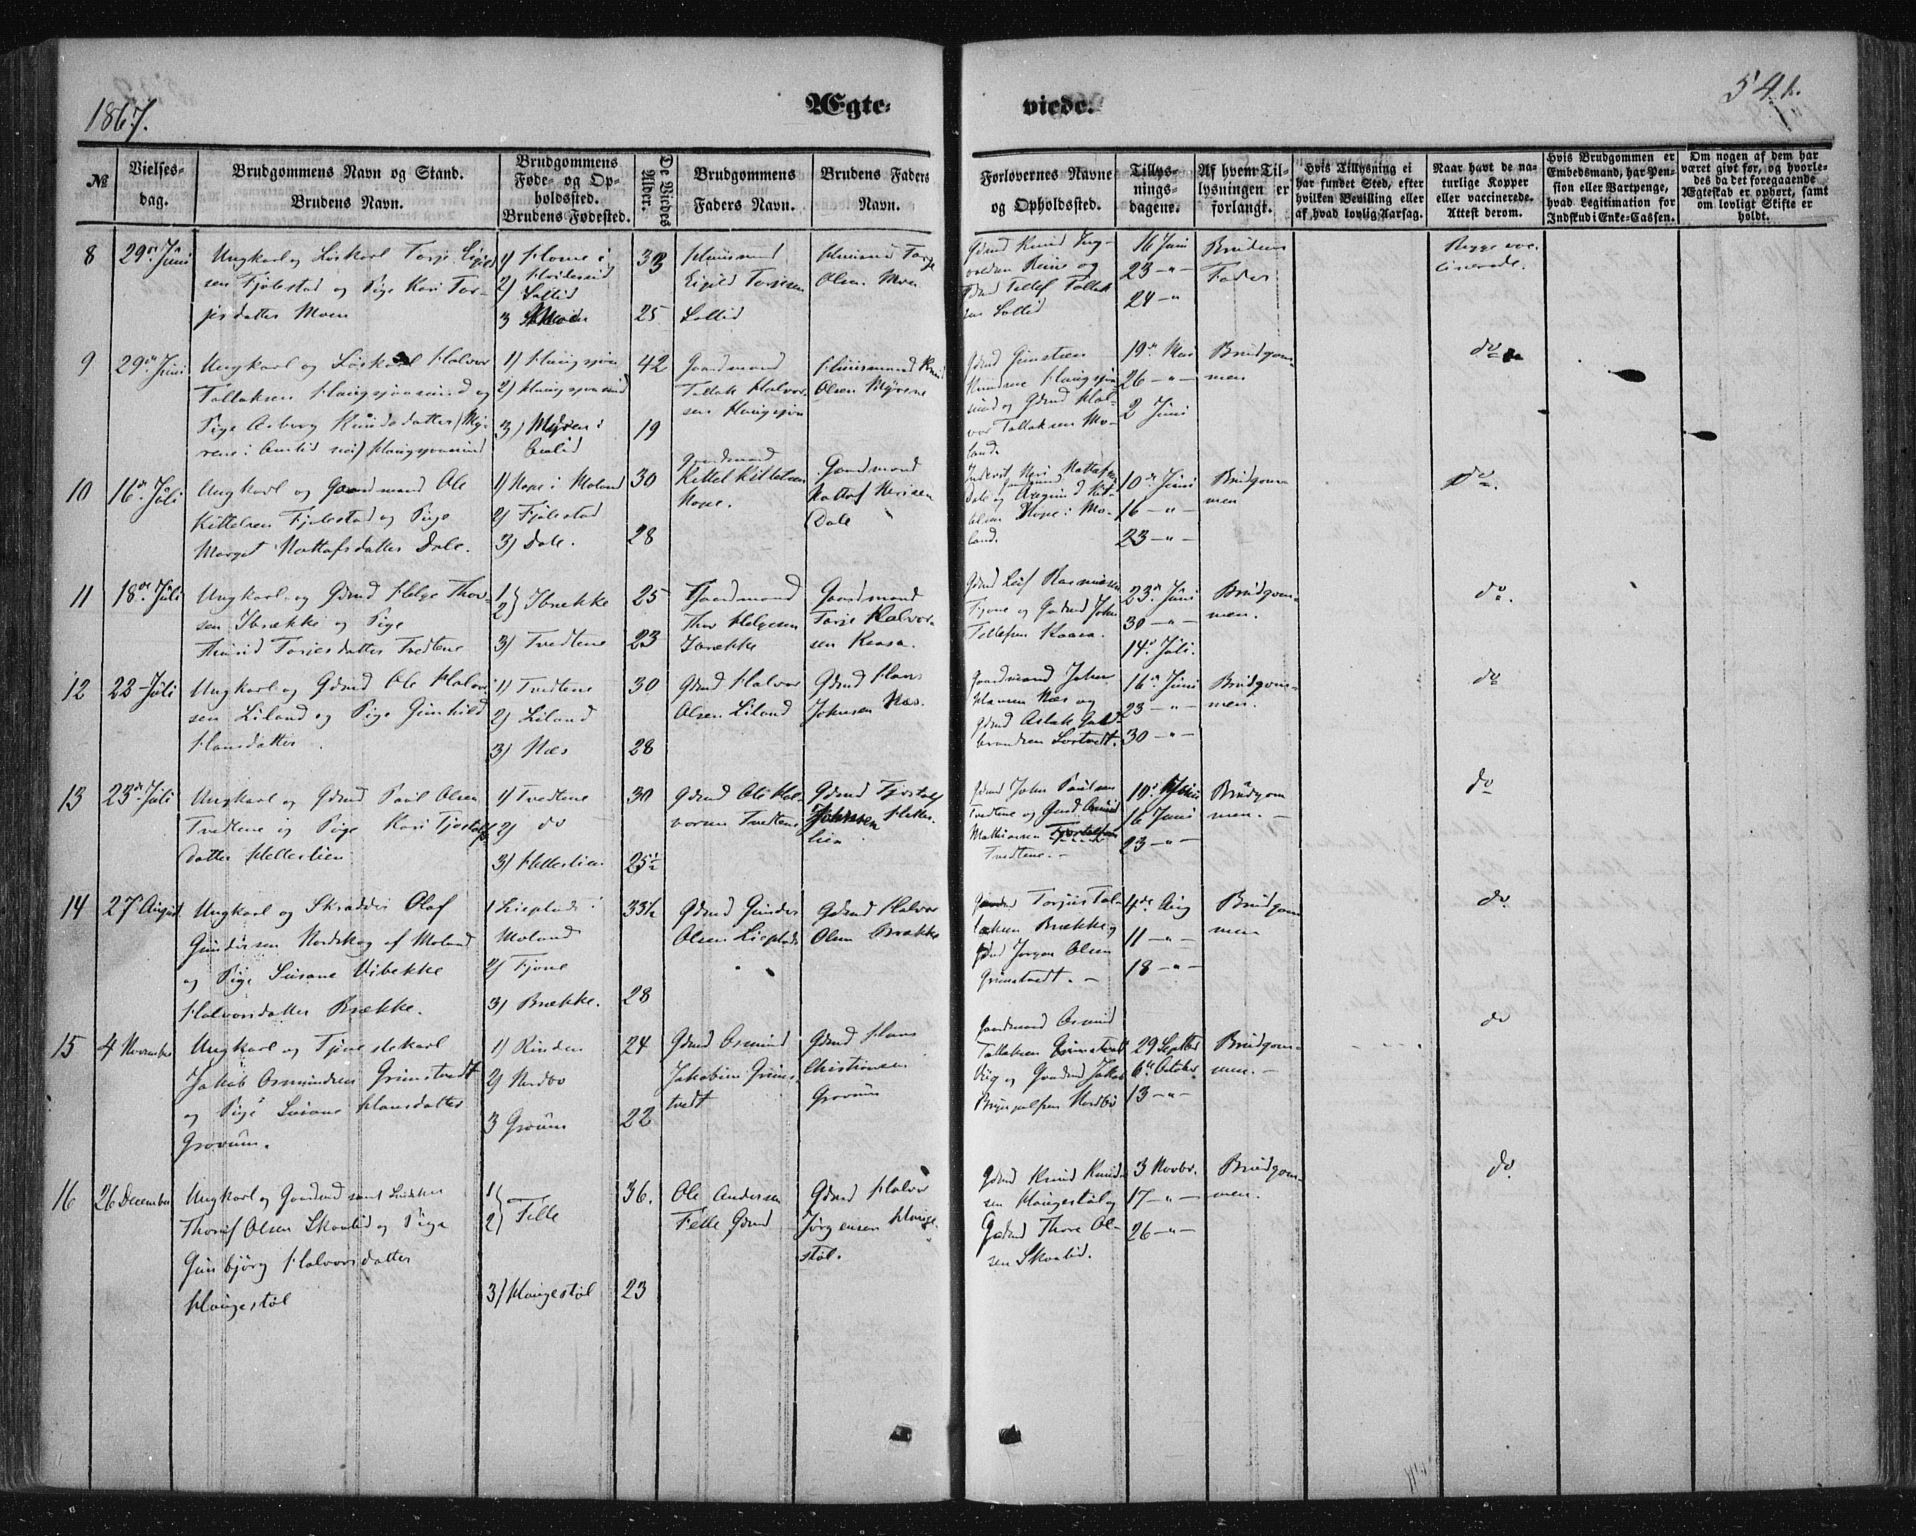 1867.
Ægte-
viede.
541.
№
Vielses-
dag.
Brudgommens Navn og Stand.
Brudens Navn.
Brudgommens
Føde- og Op-
holdssted.
Brudens Fødested.
De Viedes
Alder.
Brudgommens
Faders Navn.
Brudens Faders
Navn.
Forlovernes Navne
og Opholdssted.
Tillys-
nings-
dagene.
Af hvem Til-
lysningen er
forlangt.
Hvis Tillysning ei
har fundet Sted, efter
hvilken Bevilling eller
af hvad lovlig Aarsag.
Naar havt de na-
turlige Kopper
eller vaccinerede.
Attest derom.
Hvis Brudgommen er
Embedsmand, har Pen-
sion eller Vartpenge,
hvad Legitimation for
Indskud i Enke-Cassen.
Om nogen af dem har
været givt før, og hvorle-
des da det foregaaende
Ægteskab er ophørt, samt
om lovligt Skifte er
holdt.
8
29de Juni
Ungkarl og Løskarl Torje Eigild
sen Fjølestad og Pige Kari Tor-
jesdatter Moen
1)
2)
Loftid
3 Moen
33
25
Huusmand
Eigild Torjesen
Loftid
Huusmd Torje
Olsen Moen
Gdmd Knud
Reine og
Gdmd Tellef Tallak
sen Loftid
16 Juni
23 -"-
24 -"
Brudens
Fader
Begge vac-
cinerede.
9
29de Juni
Ungkarl og Løskarl Halvor
Tallaksen Haugsjaasund og
Pige Aasborg Knudsdatter Myr
rene i Haugsjaasund
1) Haugsjaa
2) Haugsjaasund
3) Myren i
42
19
Gaardmand
Tallak Halvor-
sen Haugsjaa
Huusmand Knud
Olsen Myrene
Gdmd
Knudsen Haugsjaa
sund og Gdmd Hal-
vor Tallaksen Mo-
land.
19de Mai
26 -"-
2 Juni
Brudgom-
men
do
10
16de Juli
Ungkarl og Gaardmand Ole
Kittelsen Fjølestad og Pige
Marget Nottofsdatter Dale.
1) Hope i Moland
2) Fjølestad
3) Dale.
30
28
Gaardmand
Kittel Kittelsen
Hope.
Gaardmand
Nottof Nerisen
Dale
Neri Nottofsen
Dale og
Hope i Mo-
land.
10de Juni
16 -"-
23 -"-
Brudgom
men
do.
11
18de Juli
Ungkarl og Gdmd Helge Thor-
sen Ibrække og Pige
Thurid Torjesdatter Tvedtene
1)
2) Ibrække
3) Tvedtene
25
23
Gaardmand
Thor Helgesen
Ibrække
Gaardmand
Torje Halvor-
sen Kaasa.
Gdmd Leif Rasmusen
Fjone og Gaardmd John
Tellefsen Kaasa.
23de Juni
30 -"-
14de Juli.
Brudgom-
men.
do.
12
22 Juli
Ungkarl og Gdmd Ole Halvor-
sen Liland og Pige Gunhild
Hansdatter
1) Tvedtene
2) Liland
3) Næs
30
28
Gdmd Halvor
Olsen Liland
Gdmd Hans
Johnsen Næs
Gaardmand John
Hansen Næs og
Gdmd Aslak Gul-
brandsen Lortvedt.
16de Juni
23 -"-
30 -"-
Brudgom-
men.
do
13
23de Juli
Ungkarl og Gdmd Paul Olsen
Tvedtene og Pige Kari Tjostolfs
datter Hellerlien
1) Tvedtene
2) do
3) Hellerlien
30
25½
Gdmd Ole Hal-
vorsen Tvedtene
Gdmd Tjostolf
Johnsen Heller-
lien
Gdmd John Paulsen
Tvedtene og Gmd Osmund
Mathiassen
Tvedtene. -
10de Juni
16 Juni
23 -"-
Brudgom
men. -
do
14
27 August
Ungkarl og Skrædder Olaf
Gundersen Nordskog af Moland
og Pige Susane Vibekke
Halvorsdatter Brække.
1 Lieplads i
Moland
2) Fjone
3) Brække.
33½
28
Gdmd Gunder
Olsen Lieplads
Gdmd Halvor
Olsen Brække
Torjus Tal-
laksen Brække og
Gdmd Jørgen Olsen
Grimstvedt. -
4de Aug
11 -"-
18 -"-
Brudgom
men
do.
15
4 November
Ungkarl og Tjenestekarl
Jakob Osmundsen Grimstvedt
og Pige Susane Hansdatter
Grovum.
1) Rinden
2) Nordbø
3 Groum
24
22
Gdmd Osmund
Jakobsen Grims-
tvedt
Gdmd Hans
Christiansen
Grovum
Gaardmand Osmund
Tallaksen Grimstvedt
og Gaardmd Jakob
Brynjulfsen Nordbø
29 Septber
6de October
13 -"-
Brudgom-
men. -
do
16
26 December
Ungkarl og Gaardmd samt
Thorulf Olsen Skaalid og Pige
Gunbjørg Halvorsdatter
Haugestøl
1)
2) Felle
3) Haugestøl
36.
23
Ole Andersen
Felle Gdmd
Gdmd Halvor
Jørgensen Hauge-
støl.
Gdmd Knud Knud-
sen Haugestøl og
Gdmd Thore Ol-
sen Skaalid.
3 Novbr.
17 -"-
26 -"-
Brudgom-
men.
do.